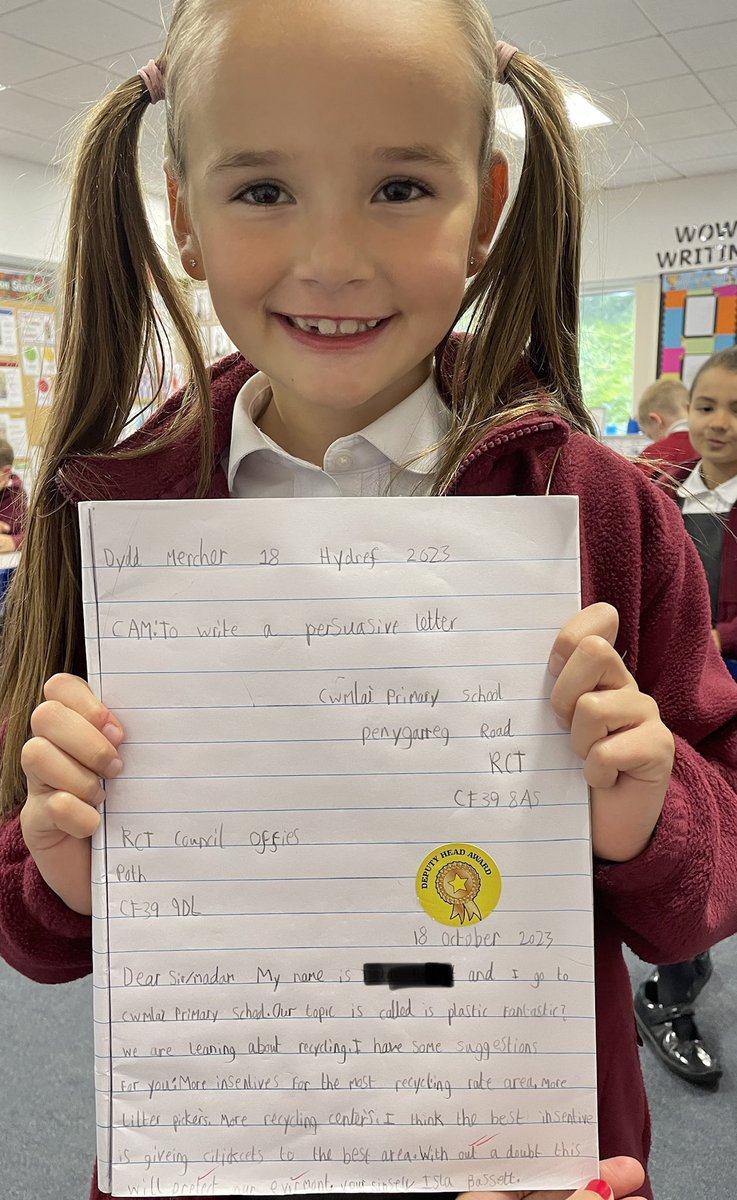 WOW
WRITIN
Dydd Mercher 18 Hydref 2023
CAM: To write a persuasive letter
Cwmlai Primary School
Penygarreg Road
RCT
CF39 8AS
RCT Council offies
Poth
CF39 9DL
DEPUTY HEAD AWARD
18 October 2023
Dear Sir/madam My name is and I go to
Cwmlai Primary School. Our topic is called is plastic Fantastic?
We are leaning about recycling. I have some suggestions
For you: More insentives For the most recycling rate area. More
litter pickers. More recycling centers. I think the best insentive
is giveing citickets to the best area. With out a doubt this
will protect our evirment. your sinsely Isla Bassett.